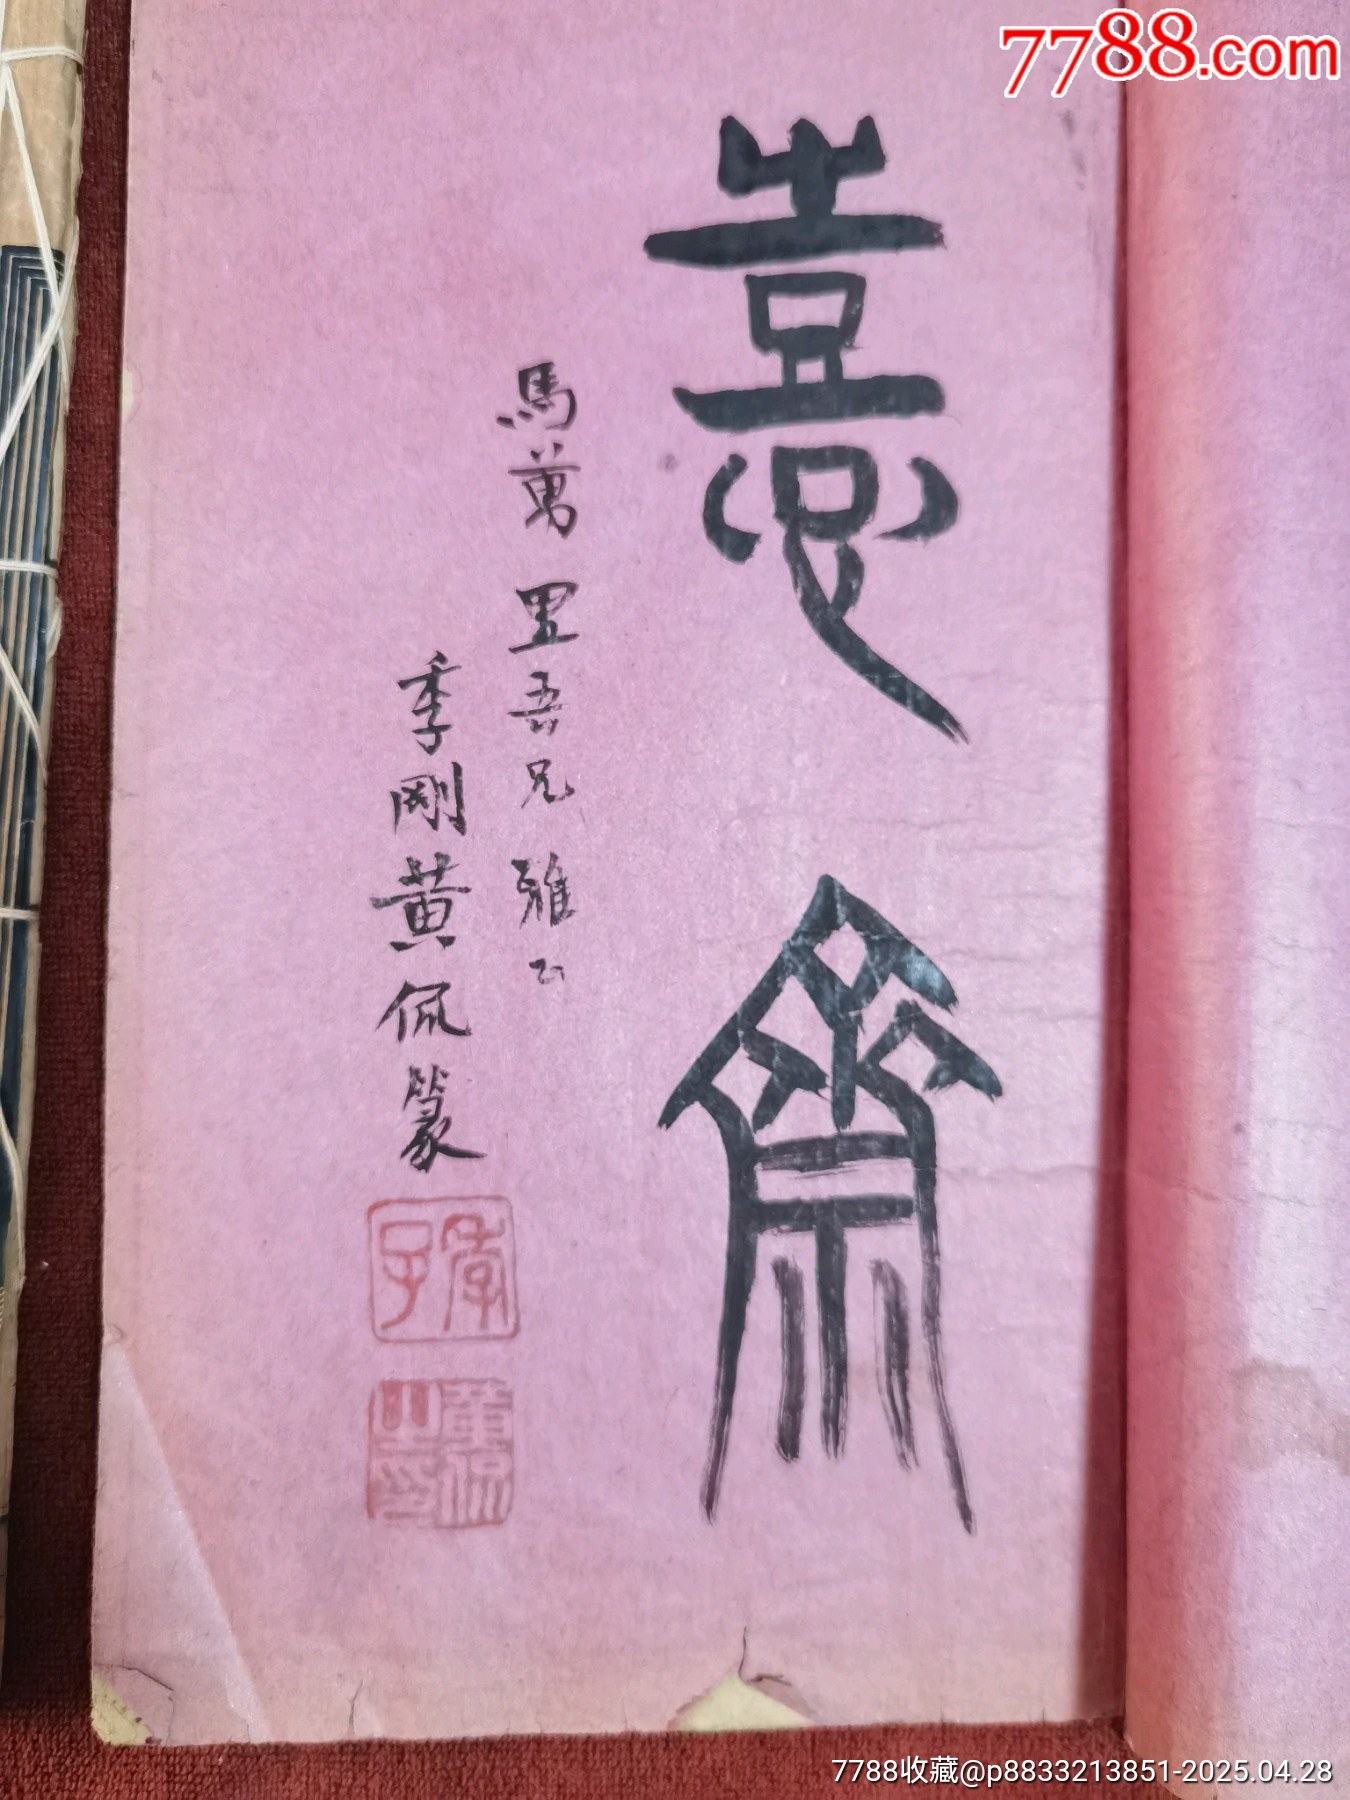 7788.com
憙齋
馬萬里吾兄雅正
季剛黃侃篆
黃侃之印
7788收藏@p8833213851-2025.04.28